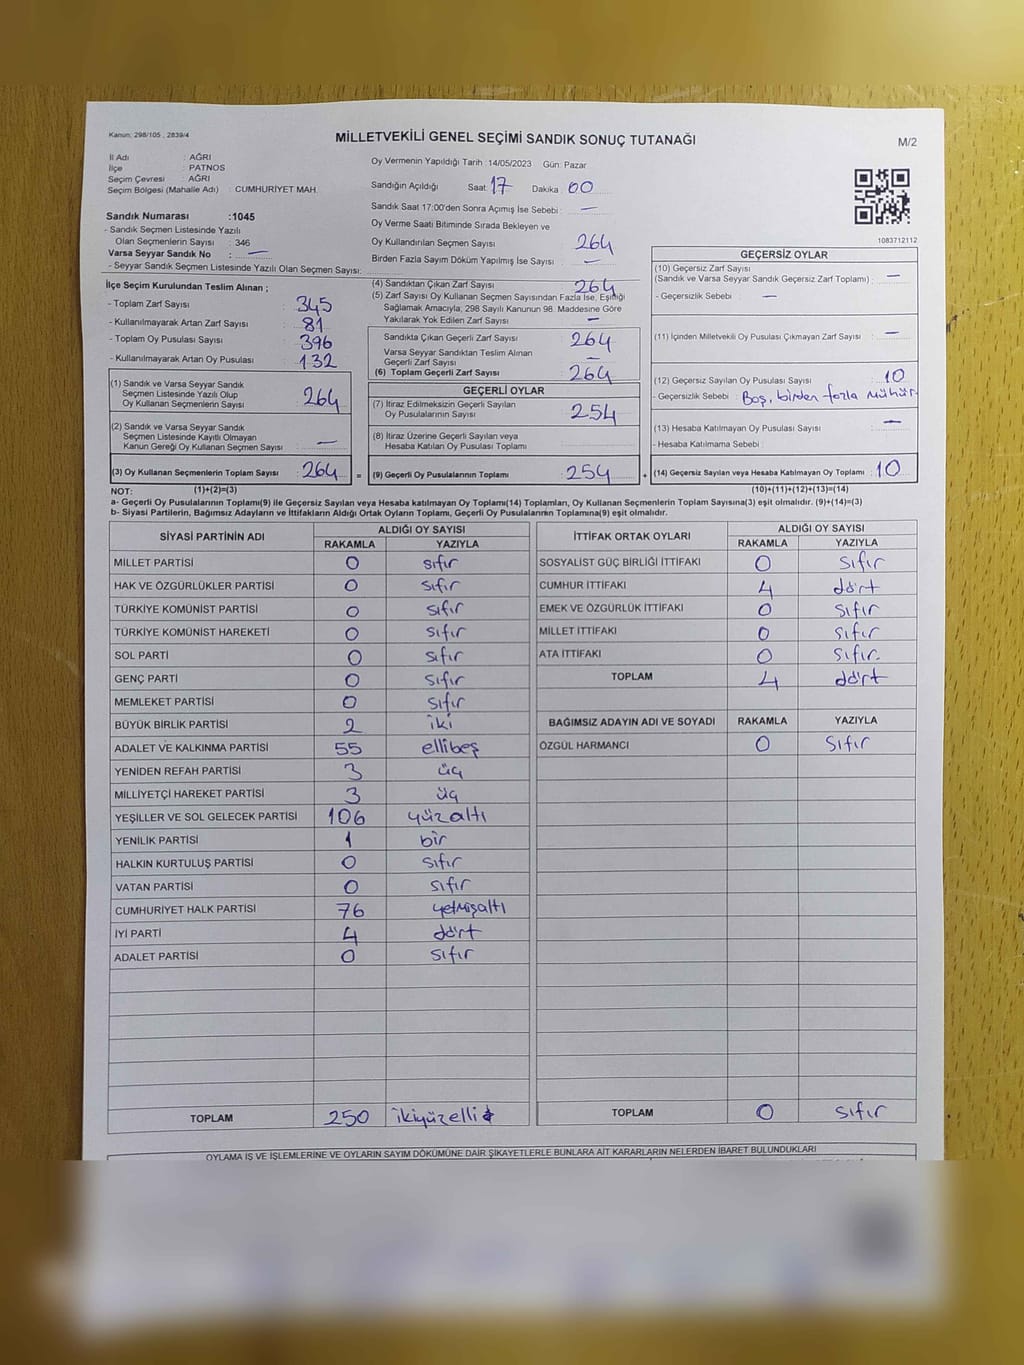 Kanun: 298/105 , 2839/4
MİLLETVEKİLİ GENEL SEÇİMİ SANDIK SONUÇ TUTANAĞI
M/2
İl Adı : AĞRI
İlçe : PATNOS
Seçim Çevresi : AĞRI
Seçim Bölgesi (Mahalle Adı) : CUMHURİYET MAH.
Sandık Numarası :1045
- Sandık Seçmen Listesinde Yazılı
Olan Seçmenlerin Sayısı : 346
Varsa Seyyar Sandık No : —
- Seyyar Sandık Seçmen Listesinde Yazılı Olan Seçmen Sayısı:
Oy Vermenin Yapıldığı Tarih :14/05/2023 Gün: Pazar
Sandığın Açıldığı Saat: 17 Dakika 00
Sandık Saat 17:00'den Sonra Açımış İse Sebebi : —
Oy Verme Saati Bitiminde Sırada Bekleyen ve
Oy Kullandırılan Seçmen Sayısı 264
Birden Fazla Sayım Döküm Yapılmış İse Sayısı : —
1083712112
İlçe Seçim Kurulundan Teslim Alınan ;
- Toplam Zarf Sayısı : 345
- Kullanılmayarak Artan Zarf Sayısı : 81
- Toplam Oy Pusulası Sayısı : 396
- Kullanılmayarak Artan Oy Pusulası : 132
(1) Sandık ve Varsa Seyyar Sandık
Seçmen Listesinde Yazılı Olup
Oy Kullanan Seçmenlerin Sayısı : 264
(2) Sandık ve Varsa Seyyar Sandık
Seçmen Listesinde Kayıtlı Olmayan
Kanun Gereği Oy Kullanan Seçmen Sayısı : —
(3) Oy Kullanan Seçmenlerin Toplam Sayısı : 264 =
(4) Sandıktan Çıkan Zarf Sayısı : 264
(5) Zarf Sayısı Oy Kullanan Seçmen Sayısından Fazla İse, Eşitliği
Sağlamak Amacıyla, 298 Sayılı Kanunun 98. Maddesine Göre
Yakılarak Yok Edilen Zarf Sayısı : —
Sandıkta Çıkan Geçerli Zarf Sayısı : 264
Varsa Seyyar Sandıktan Teslim Alınan
Geçerli Zarf Sayısı : —
(6) Toplam Geçerli Zarf Sayısı : 264
GEÇERLİ OYLAR
(7) İtiraz Edilmeksizin Geçerli Sayılan
Oy Pusulalarının Sayısı : 254
(8) İtiraz Üzerine Geçerli Sayılan veya
Hesaba Katılan Oy Pusulası Toplamı :
(9) Geçerli Oy Pusulalarının Toplamı : 254 +
GEÇERSİZ OYLAR
(10) Geçersiz Zarf Sayısı
(Sandık ve Varsa Seyyar Sandık Geçersiz Zarf Toplamı) : —
- Geçersizlik Sebebi : —
(11) İçinden Milletvekili Oy Pusulası Çıkmayan Zarf Sayısı : —
(12) Geçersiz Sayılan Oy Pusulası Sayısı : 10
- Geçersizlik Sebebi : Boş, birden fazla mühür
(13) Hesaba Katılmayan Oy Pusulası Sayısı : —
- Hesaba Katılmama Sebebi :
(14) Geçersiz Sayılan veya Hesaba Katılmayan Oy Toplamı : 10
NOT: (1)+(2)=(3) (10)+(11)+(12)+(13)=(14)
a- Geçerli Oy Pusulalarının Toplamı(9) ile Geçersiz Sayılan veya Hesaba katılmayan Oy Toplamı(14) Toplamları, Oy Kullanan Seçmenlerin Toplam Sayısına(3) eşit olmalıdır. (9)+(14)=(3)
b- Siyasi Partilerin, Bağımsız Adayların ve İttifakların Aldığı Ortak Oyların Toplamı, Geçerli Oy Pusulalarının Toplamına(9) eşit olmalıdır.
SİYASİ PARTİNİN ADI ALDIĞI OY SAYISI
RAKAMLA YAZIYLA
MİLLET PARTİSİ 0 sıfır
HAK VE ÖZGÜRLÜKLER PARTİSİ 0 sıfır
TÜRKİYE KOMÜNİST PARTİSİ 0 sıfır
TÜRKİYE KOMÜNİST HAREKETİ 0 sıfır
SOL PARTİ 0 sıfır
GENÇ PARTİ 0 sıfır
MEMLEKET PARTİSİ 0 sıfır
BÜYÜK BİRLİK PARTİSİ 2 iki
ADALET VE KALKINMA PARTİSİ 55 ellibeş
YENİDEN REFAH PARTİSİ 3 üç
MİLLİYETÇİ HAREKET PARTİSİ 3 üç
YEŞİLLER VE SOL GELECEK PARTİSİ 106 yüzaltı
YENİLİK PARTİSİ 1 bir
HALKIN KURTULUŞ PARTİSİ 0 sıfır
VATAN PARTİSİ 0 sıfır
CUMHURİYET HALK PARTİSİ 76 yetmişaltı
İYİ PARTİ 4 dört
ADALET PARTİSİ 0 sıfır
TOPLAM 250 ikiyüzelli
İTTİFAK ORTAK OYLARI ALDIĞI OY SAYISI
RAKAMLA YAZIYLA
SOSYALİST GÜÇ BİRLİĞİ İTTİFAKI 0 sıfır
CUMHUR İTTİFAKI 4 dört
EMEK VE ÖZGÜRLÜK İTTİFAKI 0 sıfır
MİLLET İTTİFAKI 0 sıfır
ATA İTTİFAKI 0 sıfır.
TOPLAM 4 dört
BAĞIMSIZ ADAYIN ADI VE SOYADI RAKAMLA YAZIYLA
ÖZGÜL HARMANCI 0 sıfır
TOPLAM 0 sıfır
OYLAMA İŞ VE İŞLEMLERİNE VE OYLARIN SAYIM DÖKÜMÜNE DAİR ŞİKAYETLERLE BUNLARA AİT KARARLARIN NELERDEN İBARET BULUNDUKLARI